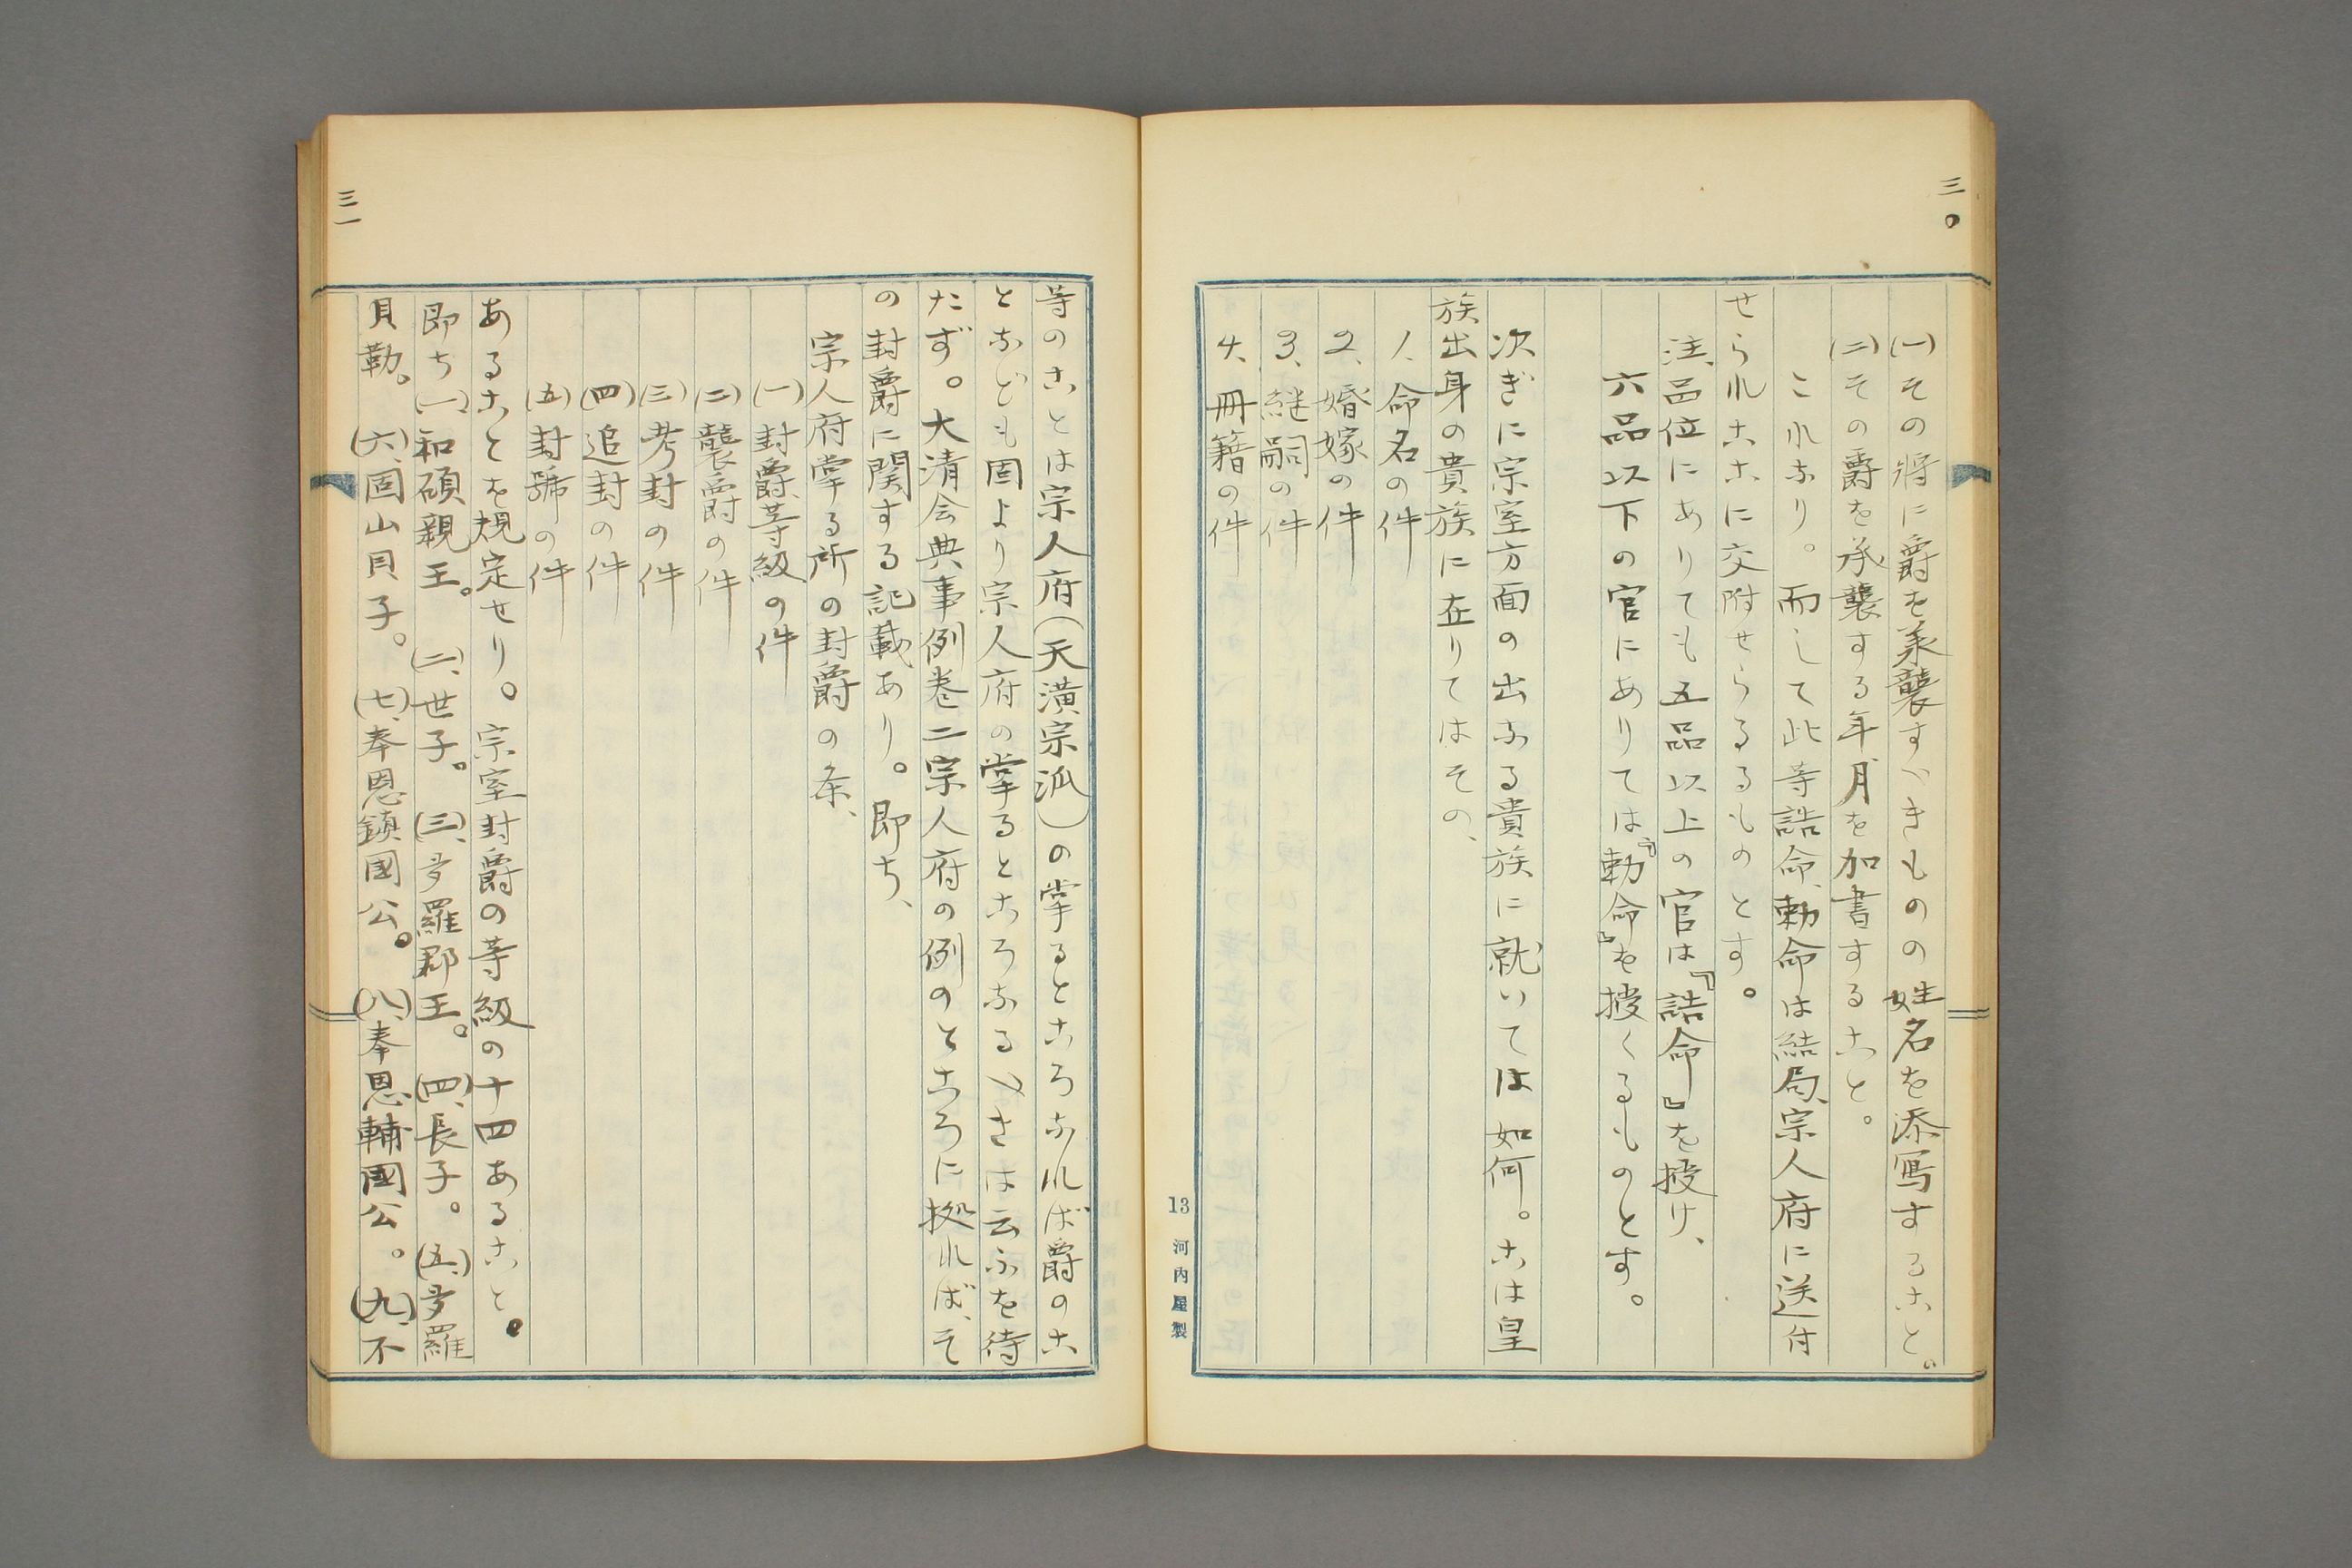 三〇
(一)その将に爵を承襲すべきものの姓名を添写すること。
(二)その爵を承襲する年月を加書すること。
これなり。而して此等誥命、勅命は結局、宗人府に送付
せられここに交附せらるるものとす。
注、品位にありても五品以上の官は『誥命』を授け、
六品以下の官にありては『勅命』を授くるものとす。
次ぎに宗室方面の出なる貴族に就いては如何。こは皇
族出身の貴族に在りてはその、
1、命名の件
2、婚嫁の件
3、継嗣の件
4、冊籍の件
13 河内屋製
三一
等のことは宗人府(天潢宗派)の掌るところなれば爵のこ
となども固より宗人府の掌るところなるべきは云ふを待
たず。大清会典事例巻二宗人府の例のところに拠れば、そ
の封爵に関する記載あり。即ち、
宗人府掌る所の封爵の条、
(一)封爵、等級の件
(二)襲爵の件
(三)考封の件
(四)追封の件
(五)封號の件
あることを規定せり。宗室封爵の等級の十四あること。
即ち(一)、和碩親王。(二)、世子。(三)、多羅郡王。(四)、長子。(五)、多羅
貝勒。(六)、固山貝子。(七)、奉恩鎮國公。(八)、奉恩輔國公。(九)、不